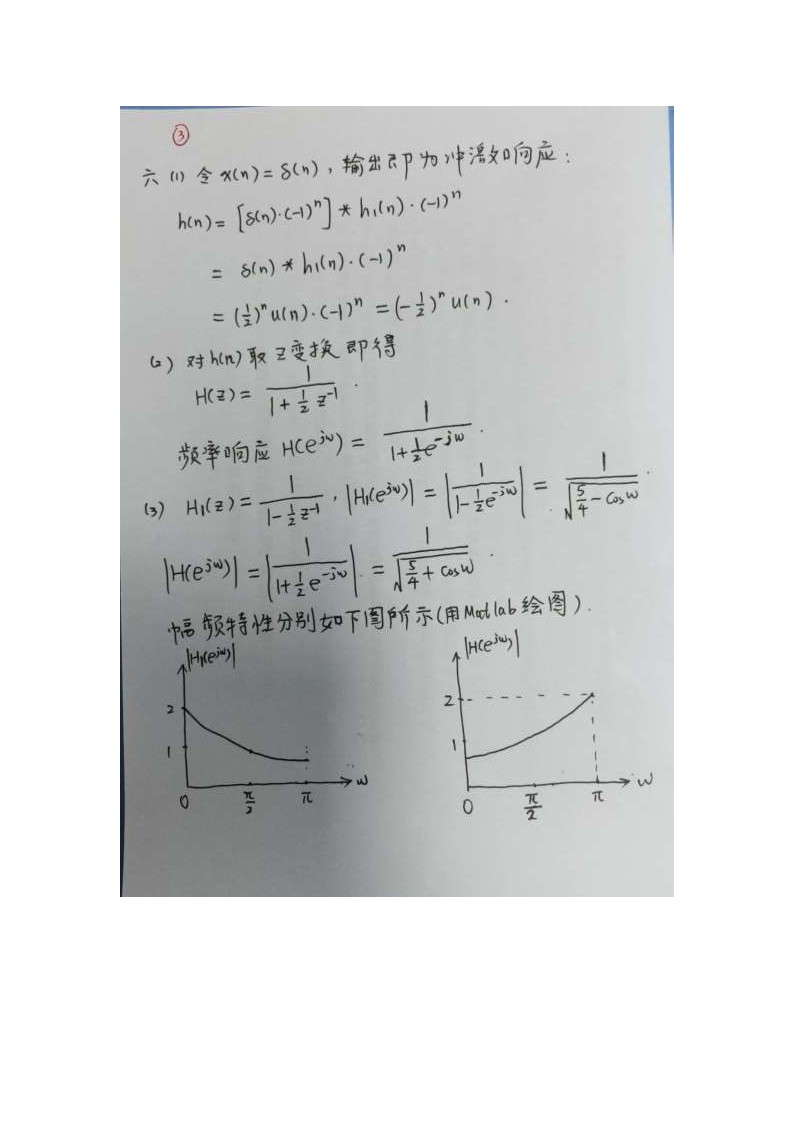 ③
六 (1) 令 x(n) = δ(n), 输出即为冲激响应:
h(n) = [δ(n)·(-1)ⁿ] * h₁(n)·(-1)ⁿ
= δ(n) * h₁(n)·(-1)ⁿ
= (1/2)ⁿ u(n)·(-1)ⁿ = (-1/2)ⁿ u(n).
(2) 对h(n)取Z变换即得
H(z) = 1/(1 + 1/2 z⁻¹).
频率响应 H(e^{jω}) = 1/(1 + 1/2 e^{-jω}).
(3) H₁(z) = 1/(1 - 1/2 z⁻¹), |H₁(e^{jω})| = |1/(1 - 1/2 e^{-jω})| = 1/√(5/4 - cosω).
|H(e^{jω})| = |1/(1 + 1/2 e^{-jω})| = 1/√(5/4 + cosω).
幅频特性分别如下图所示(用Matlab绘图).
|H₁(e^{jω})|
2
1
0 π/2 π ω
|H(e^{jω})|
2
1
0 π/2 π ω